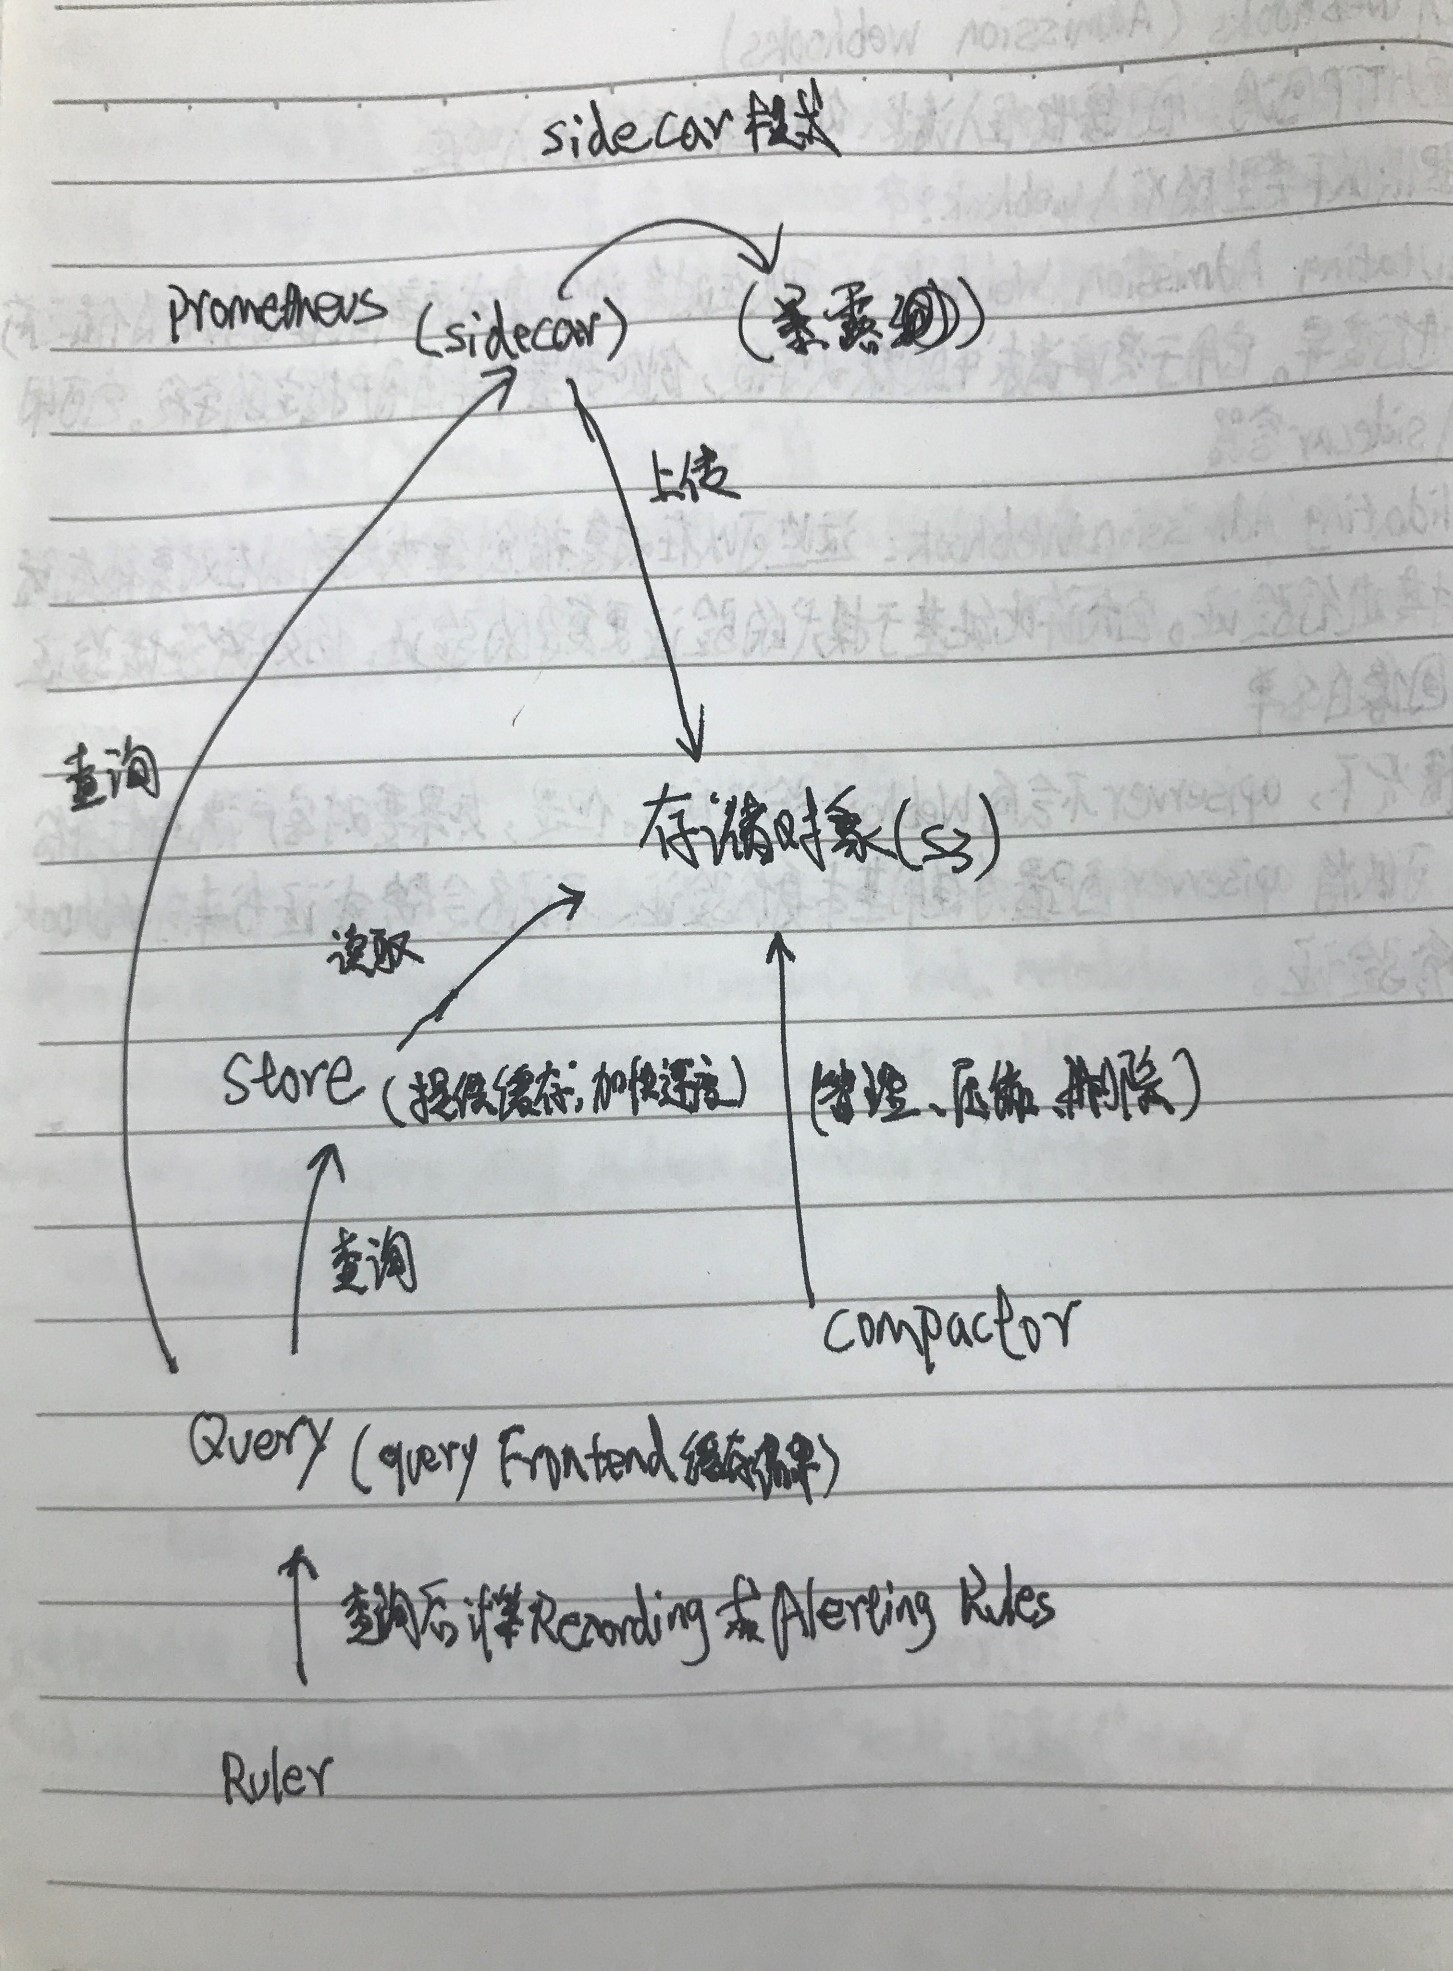 sidecar模式
prometheus (sidecar) (暴露
上传
查询
存储对象(S3)
读取
Store (提供缓存,加快速度) (管理、压缩、删除)
查询
compactor
Query (query Frontend缓存结果)
查询后计算Recording或Alerting Rules
Ruler